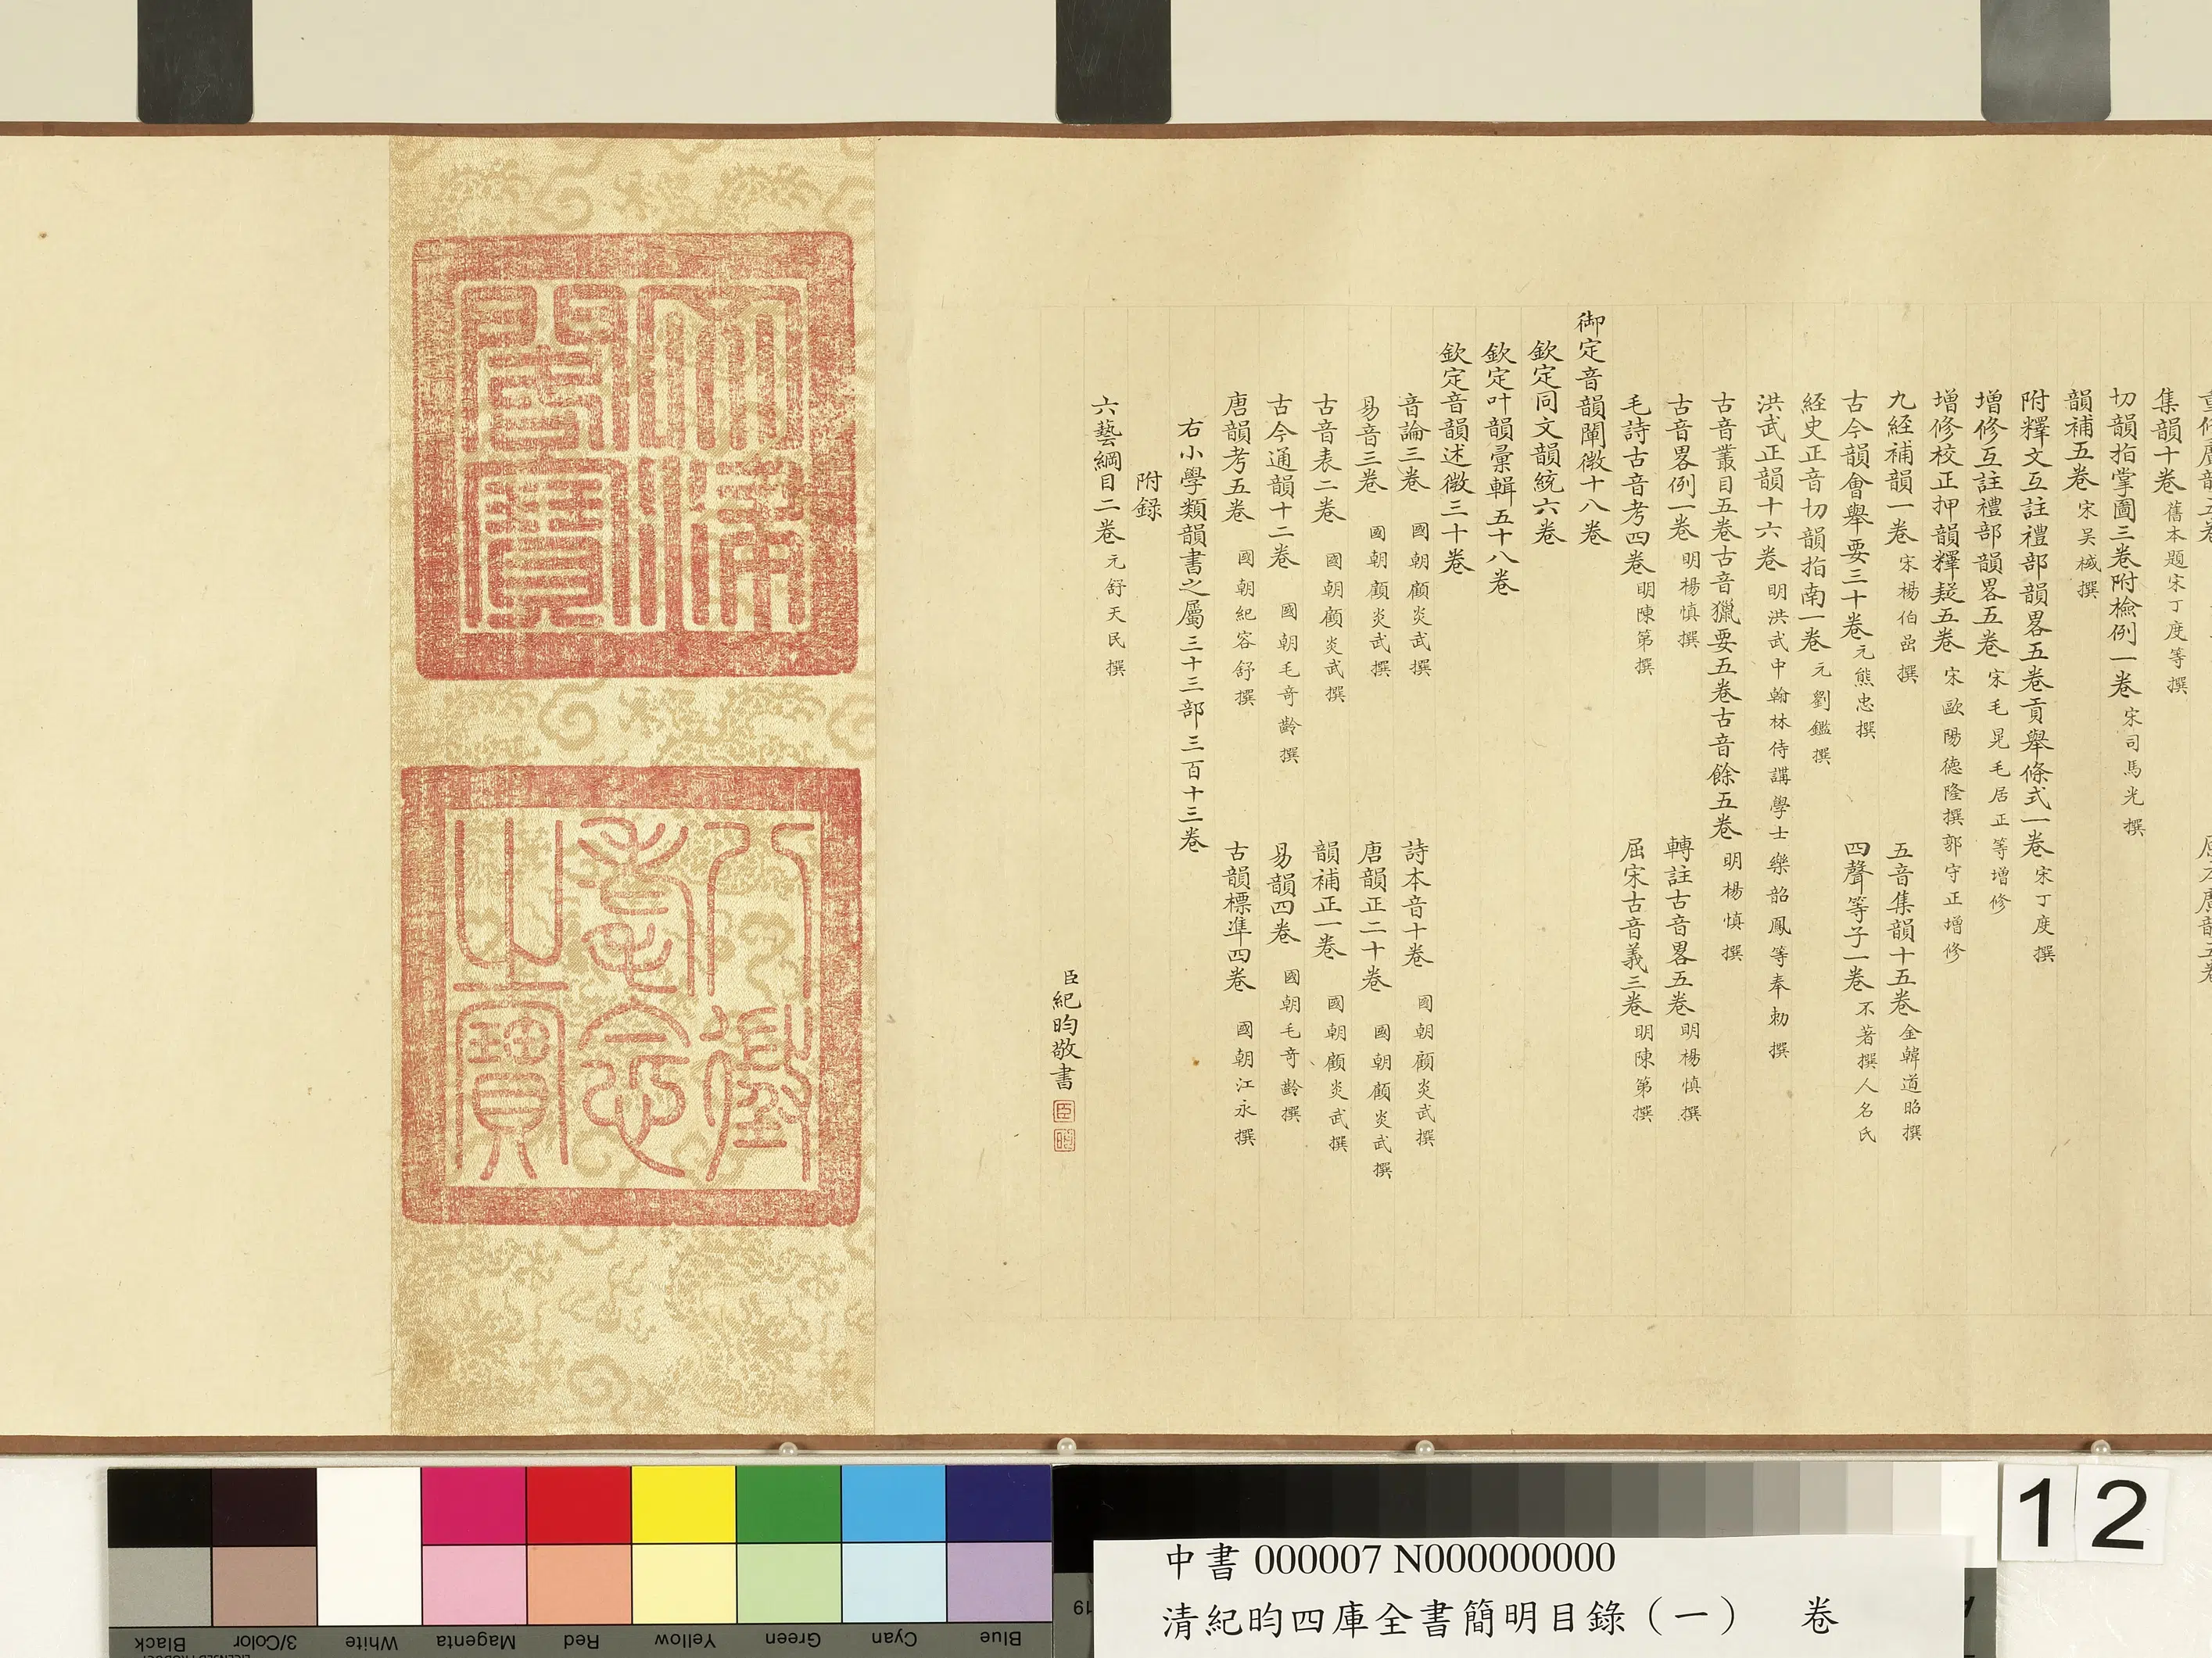 集韻十卷 舊本題宋丁度等撰
切韻指掌圖三卷附檢例一卷 宋司馬光撰
韻補五卷 宋吴棫撰
附釋文互註禮部韻畧五卷貢舉條式一卷 宋丁度撰
增修互註禮部韻畧五卷 宋毛晃毛居正等增修
增修校正押韻釋疑五卷 宋歐陽德隆撰郭守正增修
九経補韻一卷 宋楊伯嵒撰 五音集韻十五卷 金韓道昭撰
古今韻會舉要三十卷 元熊忠撰 四聲等子一卷 不著撰人名氏
経史正音切韻指南一卷 元劉鑑撰
洪武正韻十六卷 明洪武中翰林侍講學士樂韶鳳等奉勅撰
古音叢目五卷古音獵要五卷古音餘五卷 明楊慎撰
古音畧例一卷 明楊慎撰 轉註古音畧五卷 明楊慎撰
毛詩古音考四卷 明陳第撰 屈宋古音義三卷 明陳第撰
御定音韻闡微十八卷
欽定同文韻統六卷
欽定叶韻彙輯五十八卷
欽定音韻述微三十卷
音論三卷 國朝顧炎武撰 詩本音十卷 國朝顧炎武撰
易音三卷 國朝顧炎武撰 唐韻正二十卷 國朝顧炎武撰
古音表二卷 國朝顧炎武撰 韻補正一卷 國朝顧炎武撰
古今通韻十二卷 國朝毛奇齡撰 易韻四卷 國朝毛奇齡撰
唐韻考五卷 國朝紀容舒撰 古韻標準四卷 國朝江永撰
右小學類韻書之屬三十三部三百十三卷
附錄
六藝綱目二卷 元舒天民撰
臣紀昀敬書
臣
昀
八徵
耄念
之寶
12
中書 000007 N000000000
清紀昀四庫全書簡明目錄（一） 卷
Black
3/Color
White
Magenta
Red
Yellow
Green
Cyan
Blue
19